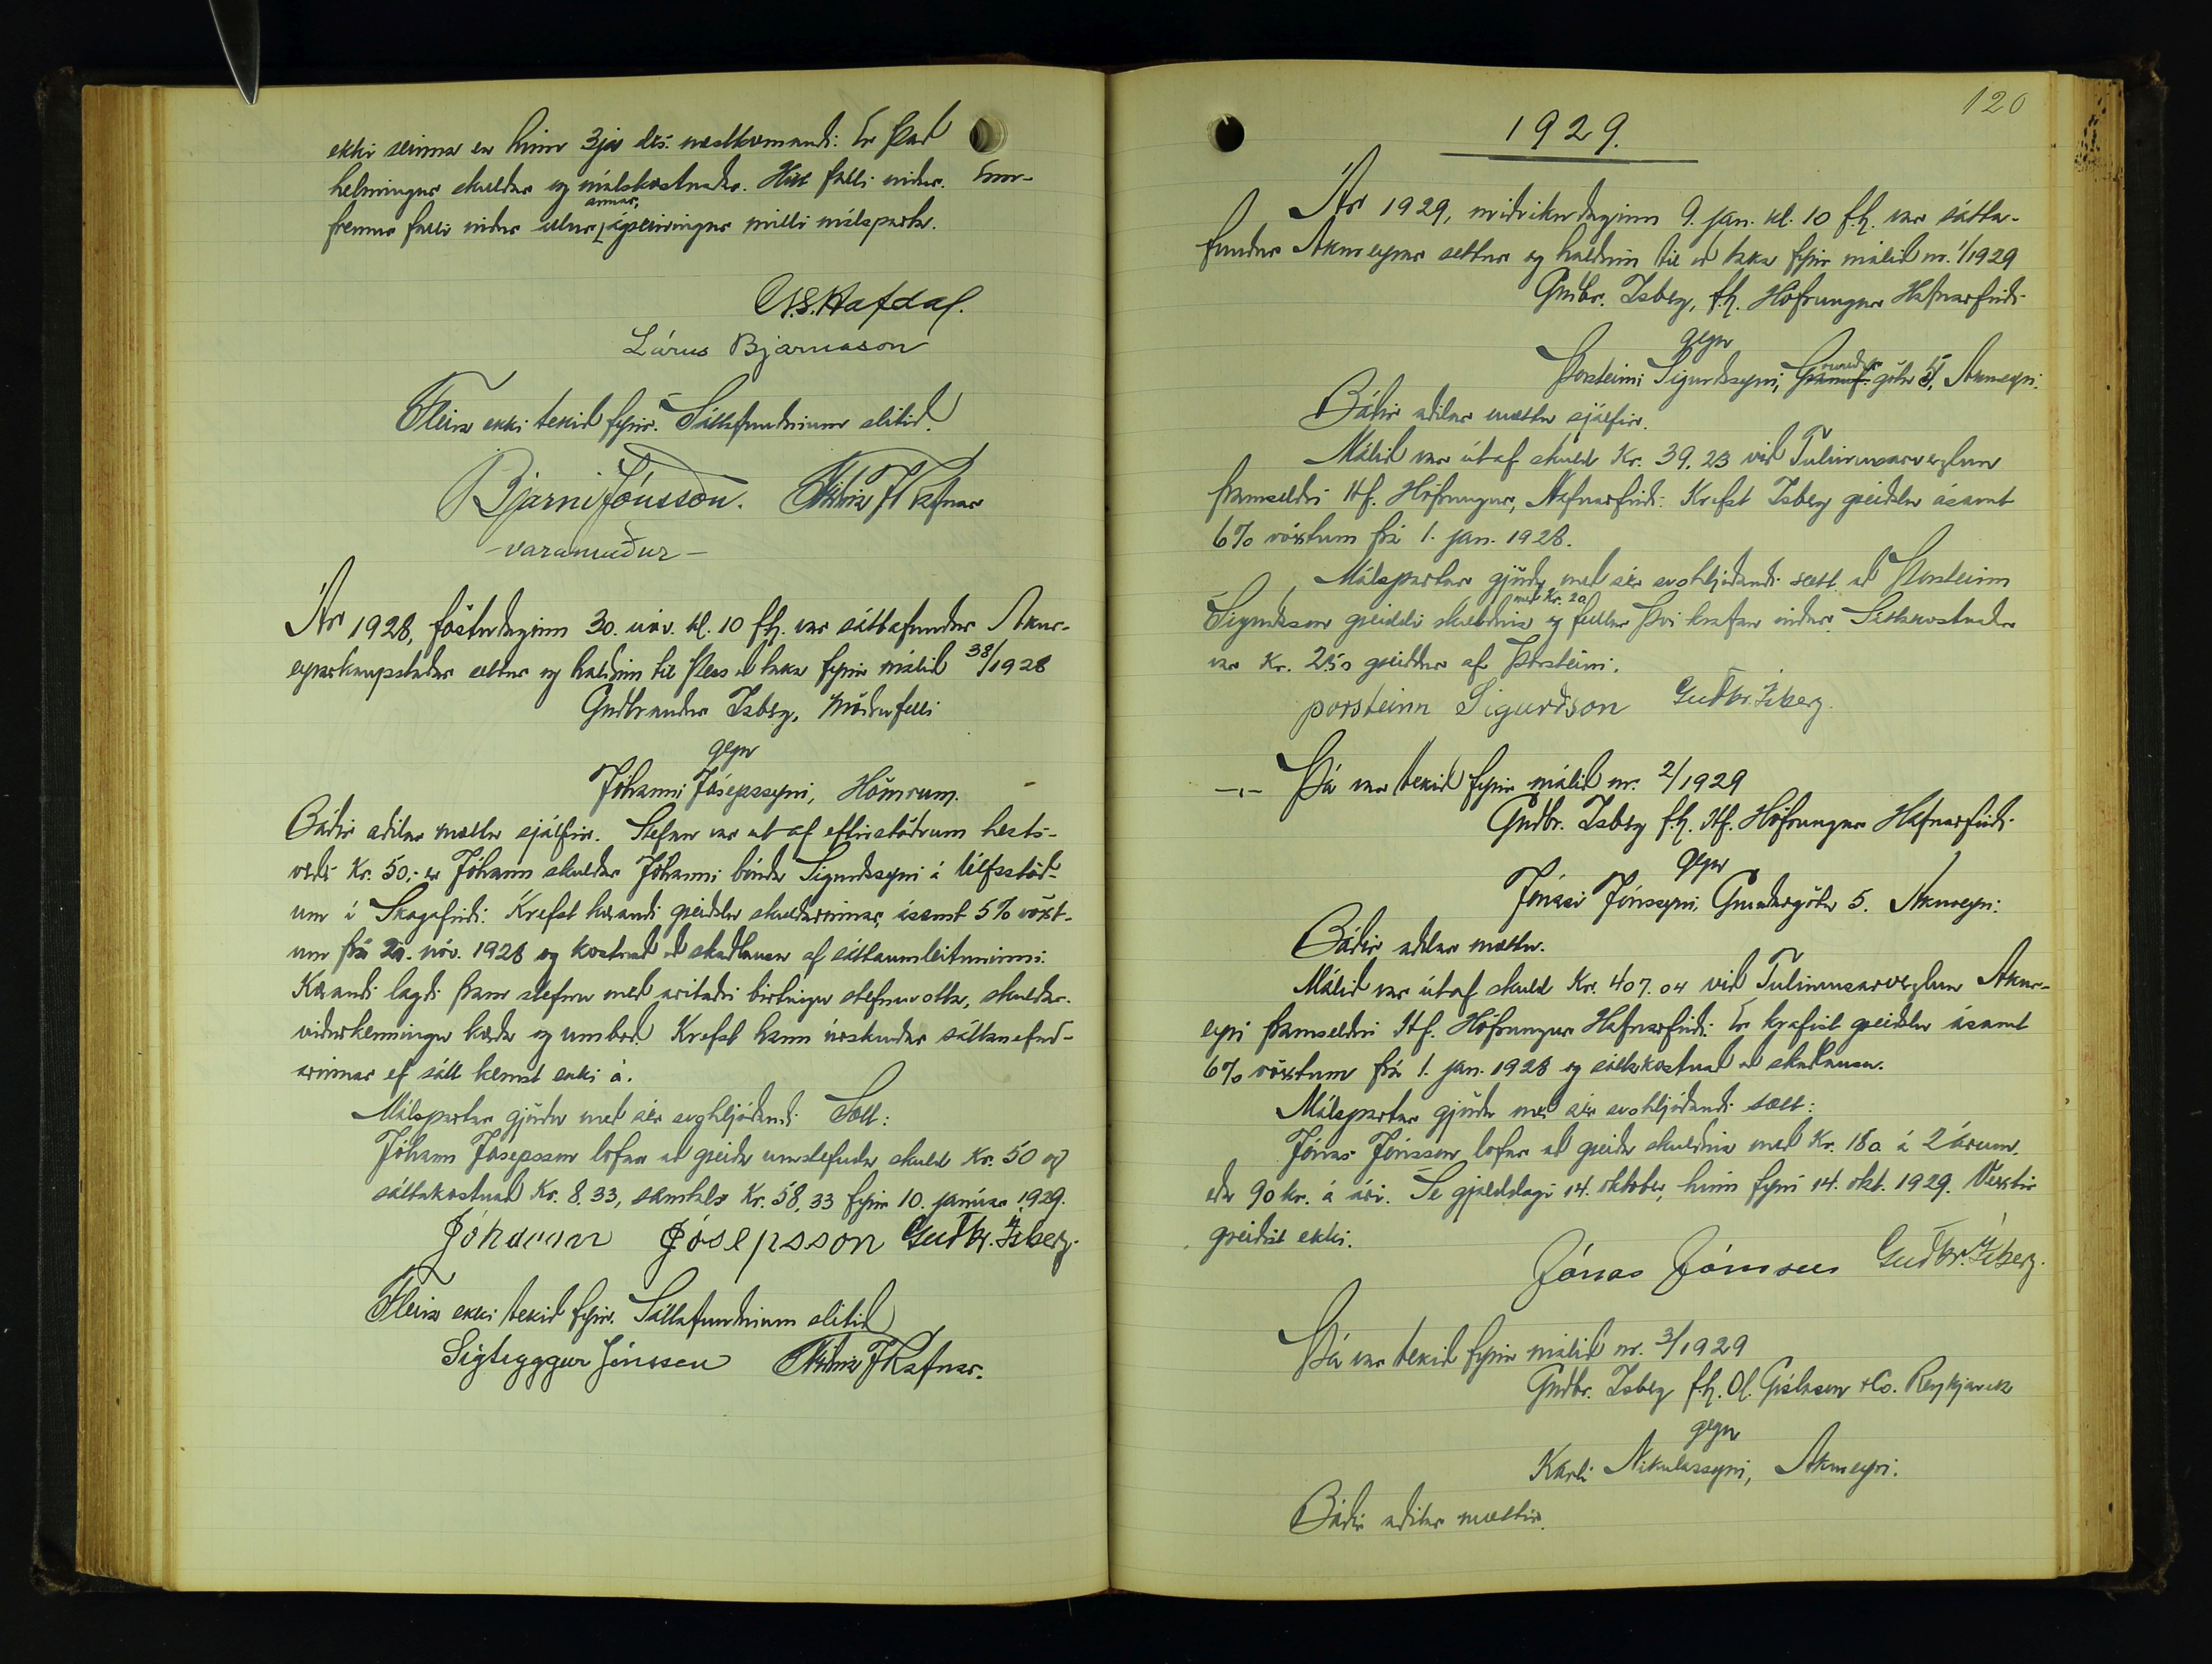 ekki seinna en hinn 3ja des. næstkomandi. Er það
helmingur skuldar og málskostnaðar. Hitt falli niður. Enn-
fremur falli niður allur annar ágreiningur milli málsparta.
G.S. Hafdal.
Lárus Bjarnason
Fleira ekki tekið fyrir. Sáttafundinum slitið.
Bjarni Jónsson. Friðrik J Rafnar
- varamaður -
Ár 1928, föstudaginn 30. nóv. kl. 10 f.h. var sáttafundur Akur-
eyrarkaupstaðar settur og haldinn til þess að taka fyrir málið 38/1928
Guðbrandur Ísberg, Möðrufelli
gegn
Jóhanni Jósepssyni, Hömrum.
Báðir aðilar mættu sjálfir. Stefnan var út af eftirstöðvum hests-
verðs Kr. 50,- er Jóhann skuldar Jóhanni bónda Sigurðssyni á Úlfsstöð-
um í Skagafirði. Krefst kærandi greiðslu skuldarinnar, ásamt 5% vöxt-
um frá 20. nóv. 1928 og kostnað að skaðlausu af sáttaumleitaninni.
Kærandi lagði fram stefnu með áritaðri birtingu stefnuvotta, skuldar-
viðurkenningu kærða og umboð. Krefst hann úrskurðar sáttanefnd-
arinnar ef sátt kemst ekki á.
Málspartar gjörðu með sér svohljóðandi Sætt:
Jóhann Jósepsson lofar að greiða umstefnda skuld Kr. 50 og
sáttakostnað Kr. 8.33, samtals Kr. 58,33 fyrir 10. janúar 1929.
Jóhann Jósepsson Guðbr. Ísberg.
Fleira ekki tekið fyrir. Sáttafundinum slitið
Sigtryggur Jónsson Friðrik J Rafnar.
120
1929.
Ár 1929, miðvikudaginn 9. jan. kl. 10 f.h. var sátta-
fundur Akureyrar settur og haldinn til að taka fyrir málið nr. 1/1929
Guðbr. Ísberg, f.h. Höfrungur Hafnarfirði
gegn
Þorsteini Sigurðssyni, götu 5, Akureyri.
Báðir aðilar mættu sjálfir.
Málið var út af skuld Kr. 39.23 við Tuliniusarverzlun
framseldri H.f. Höfrungur, Hafnarfirði. Krefst Ísberg greiðslu ásamt
6% vöxtum frá 1. jan. 1928.
Málspartar gjörðu með sér svohljóðandi sætt að Þorsteinn
Sigurðsson greiddi skuldina með Kr. 20 og fellur því krafan niður. Sáttakostnaður
var Kr. 2.50 greiddur af Þorsteini.
Þorsteinn Sigurðsson Guðbr. Ísberg.
-,- Þá var tekið fyrir málið nr. 2/1929
Guðbr. Ísberg f.h. H.f. Höfrungur Hafnarfirði
gegn
Jónasi Jónssyni, Grundargötu 5. Akureyri.
Báðir aðilar mættu.
Málið var út af skuld Kr. 407.04 við Tuliniusarverzlun Akur-
eyri framseldri H.f. Höfrungur Hafnarfirði. Er krafist greiðslu ásamt
6% vöxtum frá 1. jan. 1928 og sáttakostnað að skaðlausu.
Málspartar gjörðu með sér svohljóðandi sætt:
Jónas Jónsson lofar að greiða skuldina með Kr. 180 á 2 árum,
eða 90 kr. á ári. Sé gjalddagi 14. október, hinn fyrri 14. okt. 1929. Vextir
greiðist ekki.
Jónas Jónsson Guðbr. Ísberg.
Þá var tekið fyrir málið nr. 3/1929
Guðbr. Ísberg f.h. Ól. Gíslason & Co. Reykjavík
gegn
Karli Nikulássyni, Akureyri.
Báðir aðilar mættir.